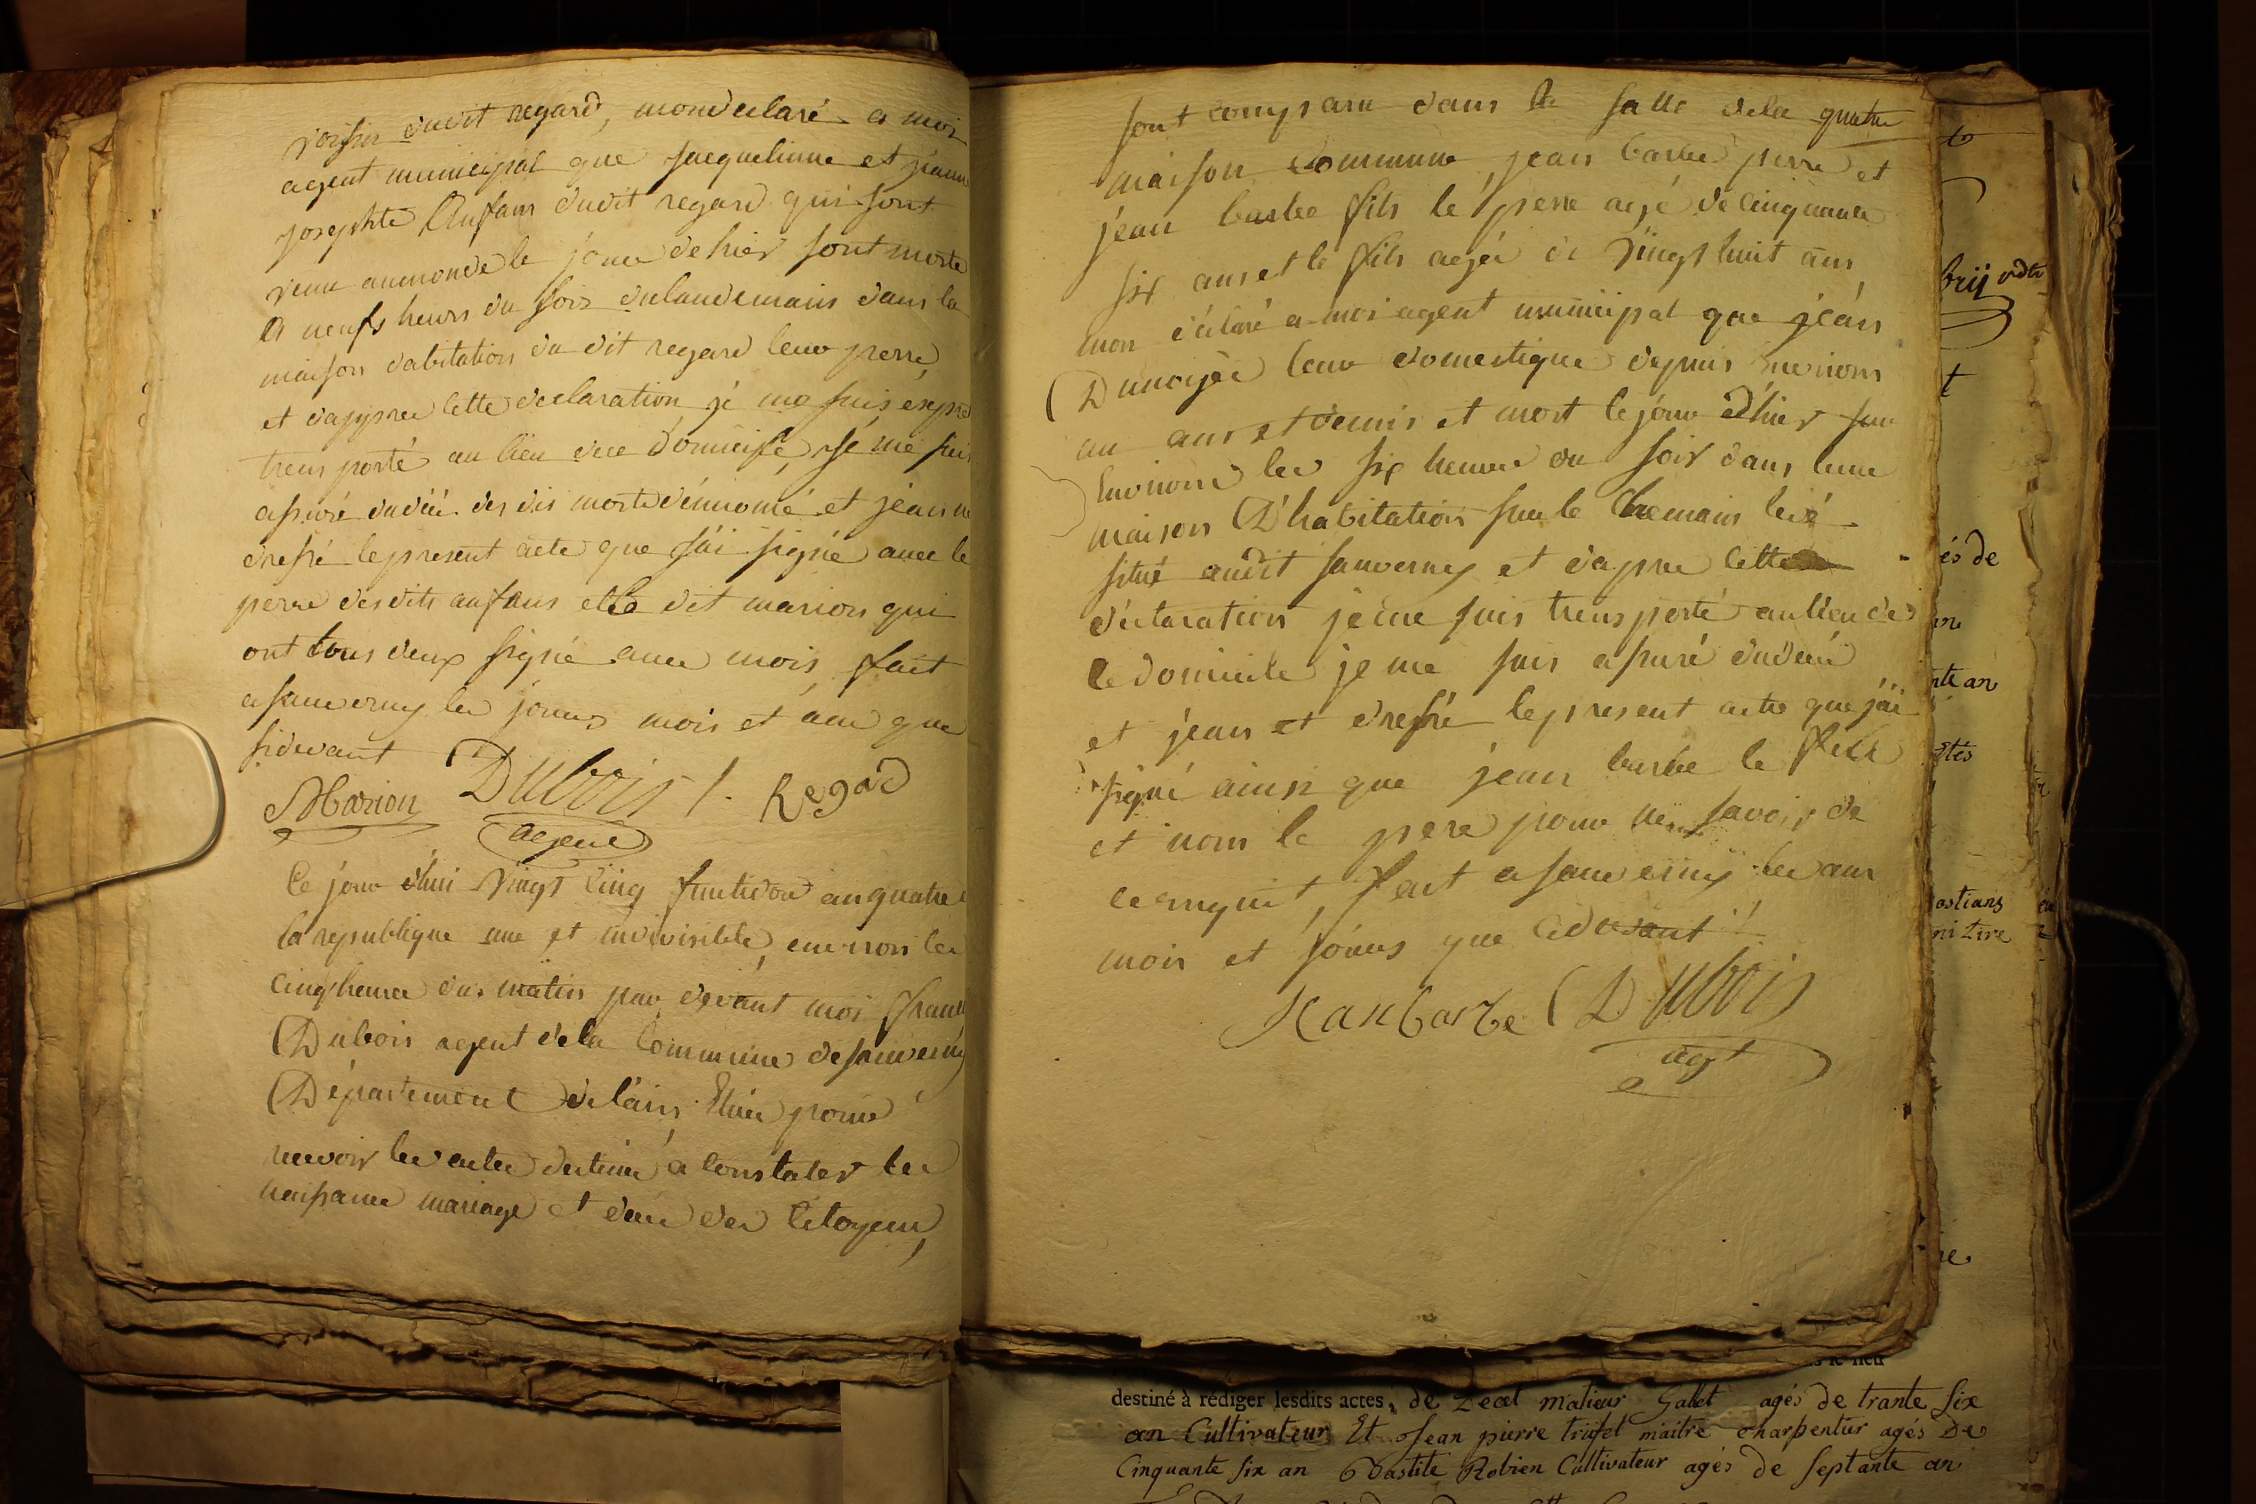 voisin dudit regard, mon declaré a moi
agent municipal que jacquelinne et jeanne
josephte Anfans dudit regard qui sont
venu aumonde le jour de hier sont morte
a neufs heurs du soir dulandemains dans la
maison dabitation du dit regard leur perre
et dapprer cette declaration je me suis
trensporté au lieu dece domicile, je me suis
assuré dudéé des dis morte dénnomé et jean
dressé lepresent acte que j'ai signé avec le
perre desdits anfans et le dit marion qui
ont tous deux signé avec mois fait
a sauverny les jours mois et an que
sidevant
Marion Dubois J. Regard
agent
Ce jour d'hui vingt cinq fructidor an quatre
la republique une et indivisible, environ les
cinq heures du matin par devant moi
Dubois agent dela Commune de sauverny
Département delain Elue pour
recevoir les actes destiné a constater les
naissance mariage et décé des Citoyens,
sont comparu dans la salle dela quatre
maison commune, jean barbe perre et
jean barbe fils le perre agé de cinquante
six ans et le fils agée de vingt huit ans
mon déclaré a moi agent municipal que jéan
Dunoyer leur domestique depuis environs
un ans et demis et mort le jour d'hier sur
Environs les six heures du soir dans leur
maison D'habitation sur le Chemain
situé audit sauverny et daprer cette
déclaration je me suis trensporté au lieu de
ce domicile je me suis assuré dudéé
et jean et dressé lepresent acte que j'ai
signé ainsi que jean barbe le fils
et nom le pere pour ne savoir de
ce requit, fait a sauverny les ans
mois et jours que cidevant
Jean barbe Dubois
agt
brij
t
és de
nte an
ostians
ni Tire
destiné à rédiger lesdits actes, de Zeal matieur Gallet agés de trante six
an Cultivateur Et Jean pierre trifet maitre charpentier agés De
Cinquante six an Bastite Robien Cultivateur agés de septante an